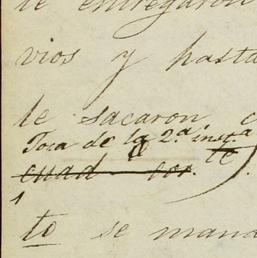 le entregaron
vios y hasta
le sacaron c
Toca de la 2.ª inst.ª
te
to se mand